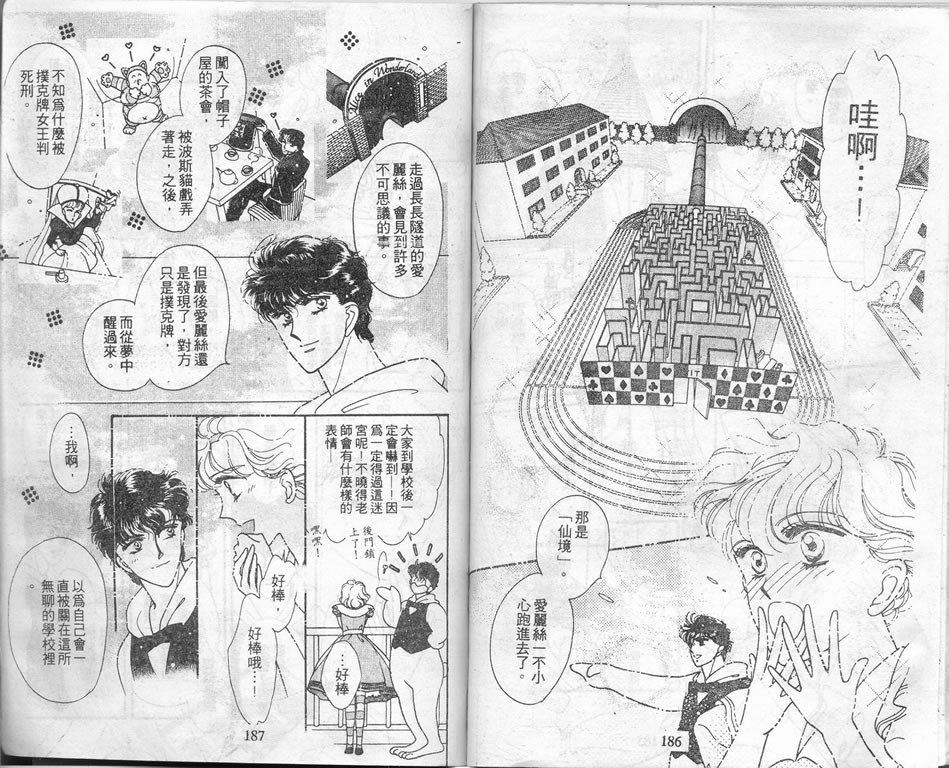 哇啊……!
那是
「仙境」。
愛麗絲一不小
心跑進去了。
EXIT
186
Alice in Wonderland
走過長長隧道的愛
麗絲,會見到許多
不可思議的事。
闖入了帽子
屋的茶會,
被波斯貓戲弄
著走,之後,
不知為什麼被
撲克牌女王判
死刑。
但最後愛麗絲還
是發現了,對方
只是撲克牌,
而從夢中
醒過來。
大家到學校後一
定會嚇到——!因
為一定得過這迷
宮呢!不曉得老
師會有什麼樣的
表情—
後門鎖
上了!
嘿嘿!
…好棒
好棒,
好棒哦…!
…我啊,
以為自己會一
直被關在這所
無聊的學校裡
。
187